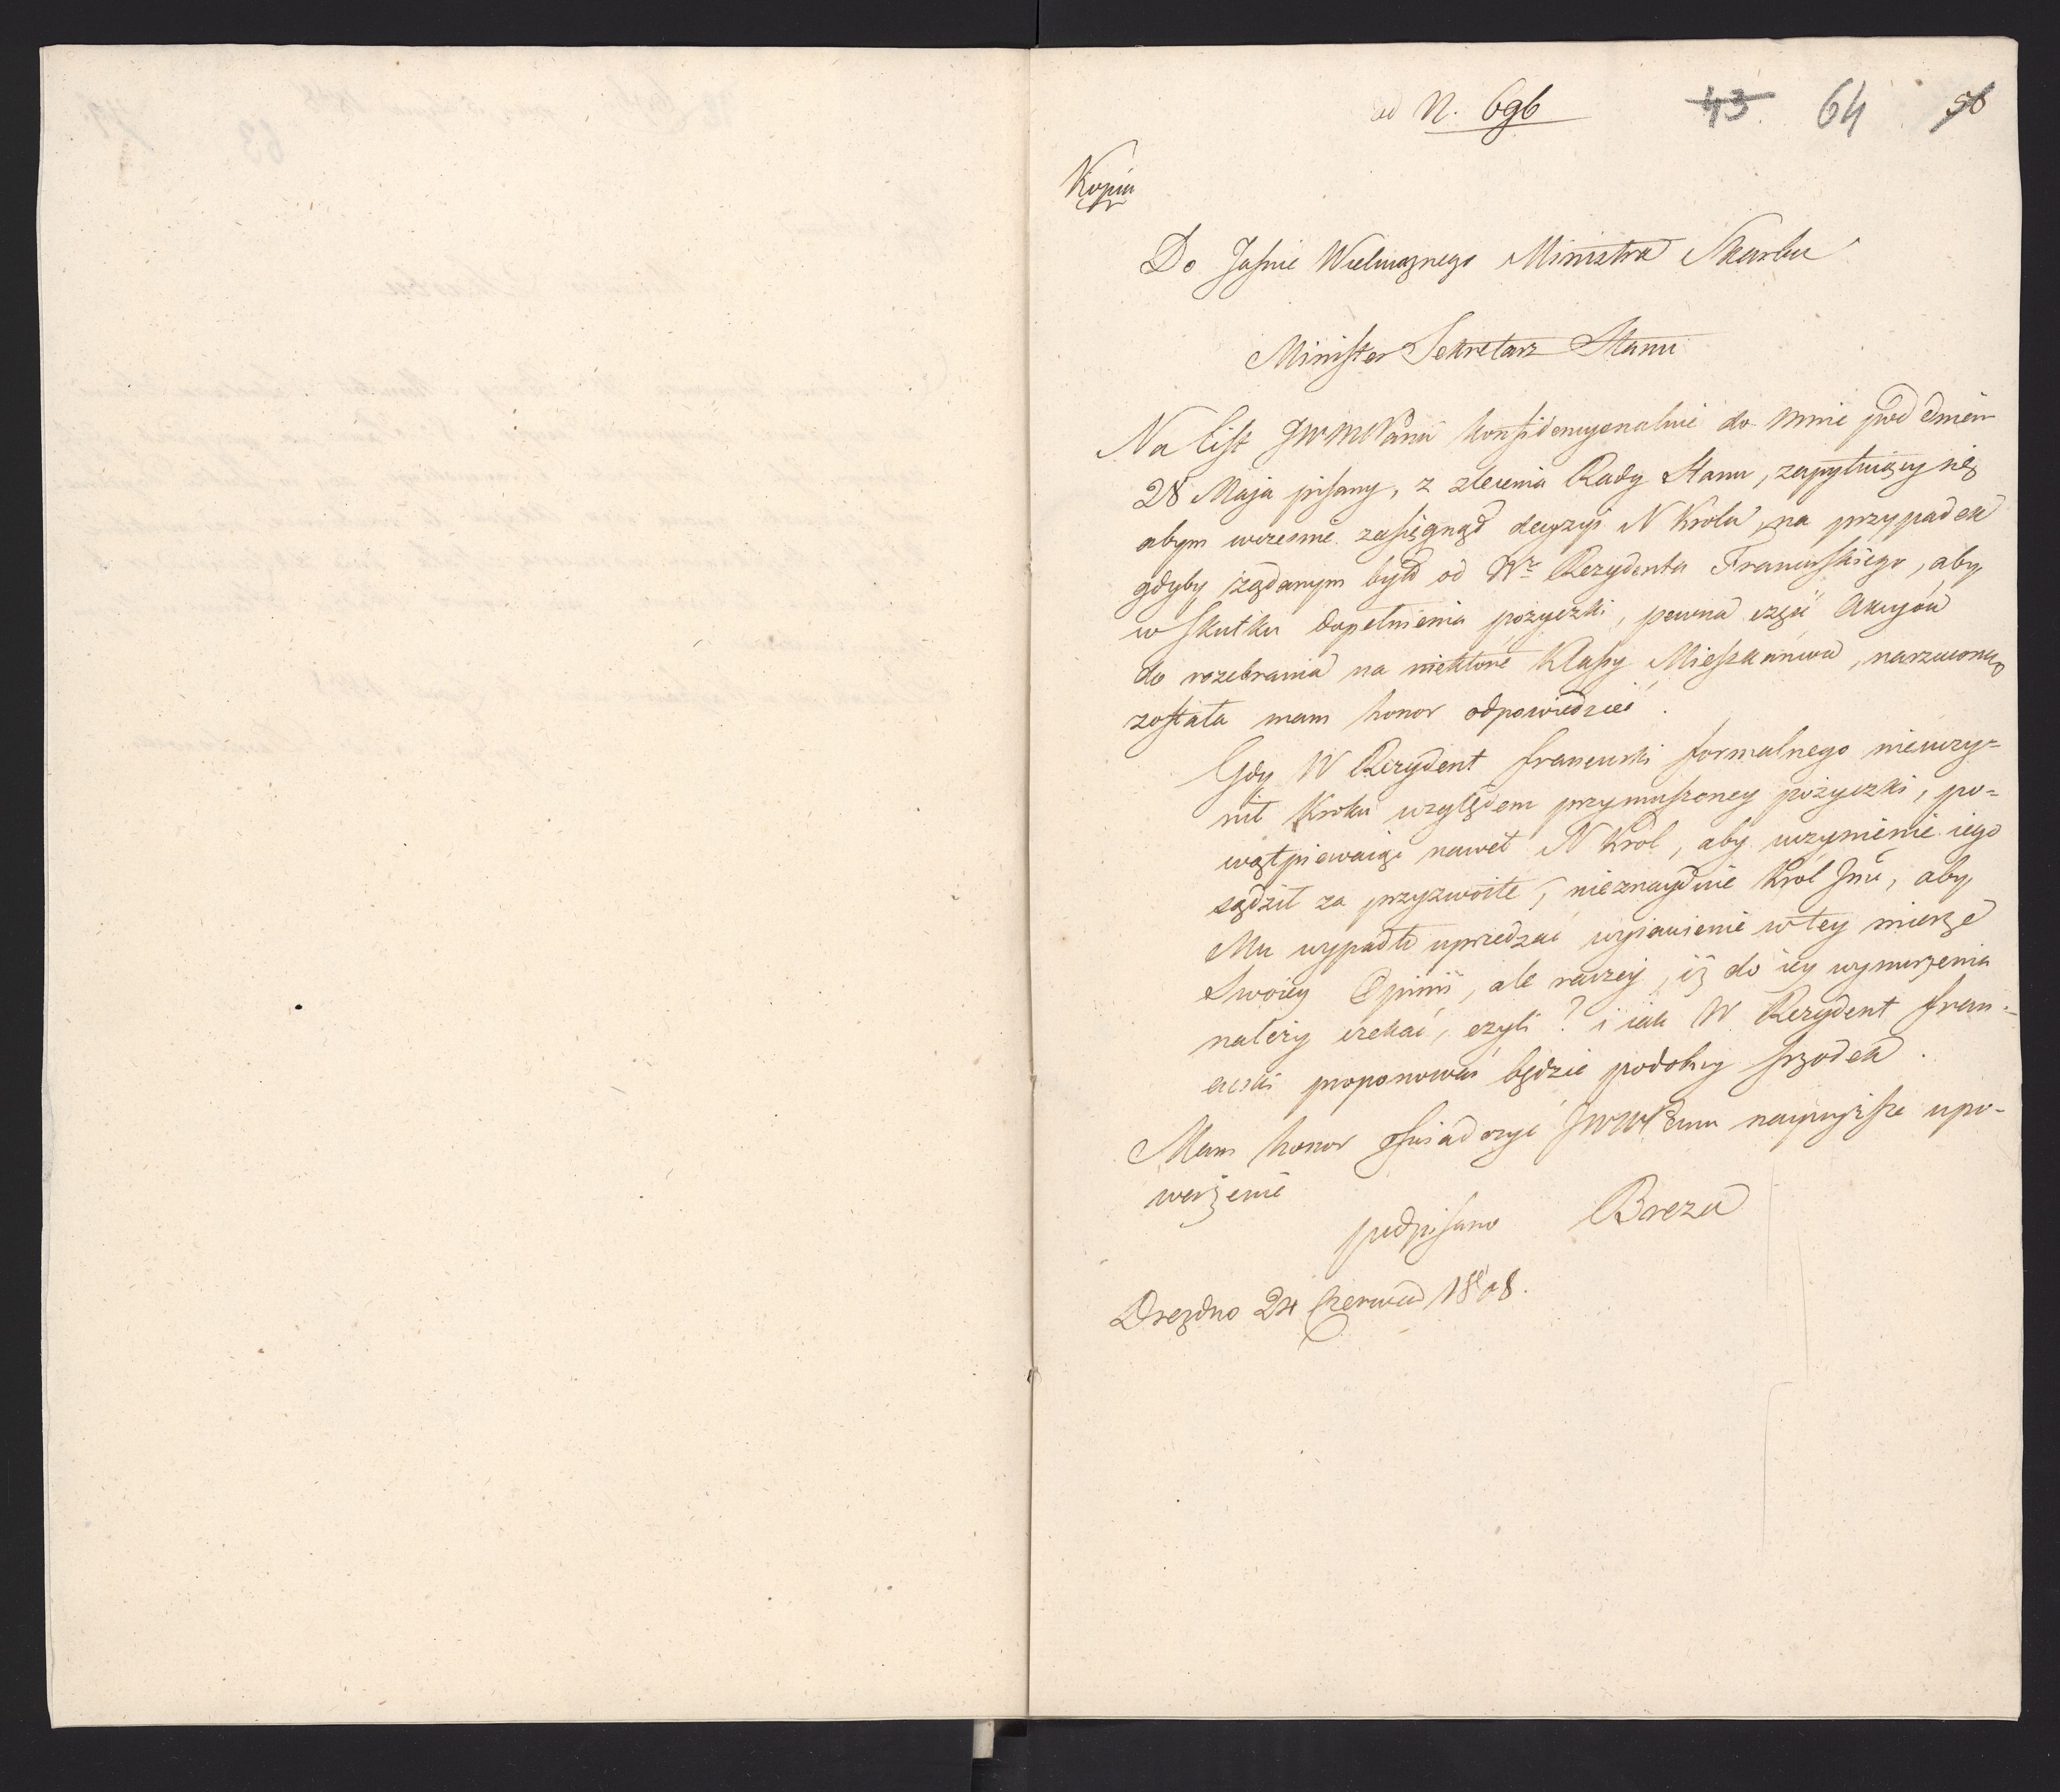 ad N. 696
43 64 56
Kopia
Do Jaśnie Wielmożnego Ministra Skarbu
Minister Sekretarz Stanu
Na list JWWPana konfidencyonalnie do mnie pod dniem
28 Maja pisany, z zlecenia Rady Stanu, zapytuiący się
abym wcześnie zasięgnął decyzyi N Króla, na przypadek
gdyby żądanym było od Wo Rezydenta Francuskiego, aby
w skutku dopełnienia pożyczki, pewna część Akcyów
do rozebrania na niektóre Klassy Mieszkańców, narzuconą
została mam honor odpowiedzieć.
Gdy W Rezydent francuski formalnego nieuczy=
nił kroku względem przymuszoney pożyczki, po=
wątpiewaiąc nawet N Król, aby uczynienie iego
sądził za przyzwoite, nieznayduie Król Jmć, aby
Mu wypadło uprzedzać wyiawienie w tey mierze
Swoiey Opinii, ale raczey, iż do iey wynurzenia
należy czekać, czyli? i iak W Rezydent fran=
cuski proponować będzie podobny srzodek.
Mam honor oświadczyć JWWPanu naywyższe upo-
ważenie
podpisano Breza
Drezno 24 Czerwca 1808.